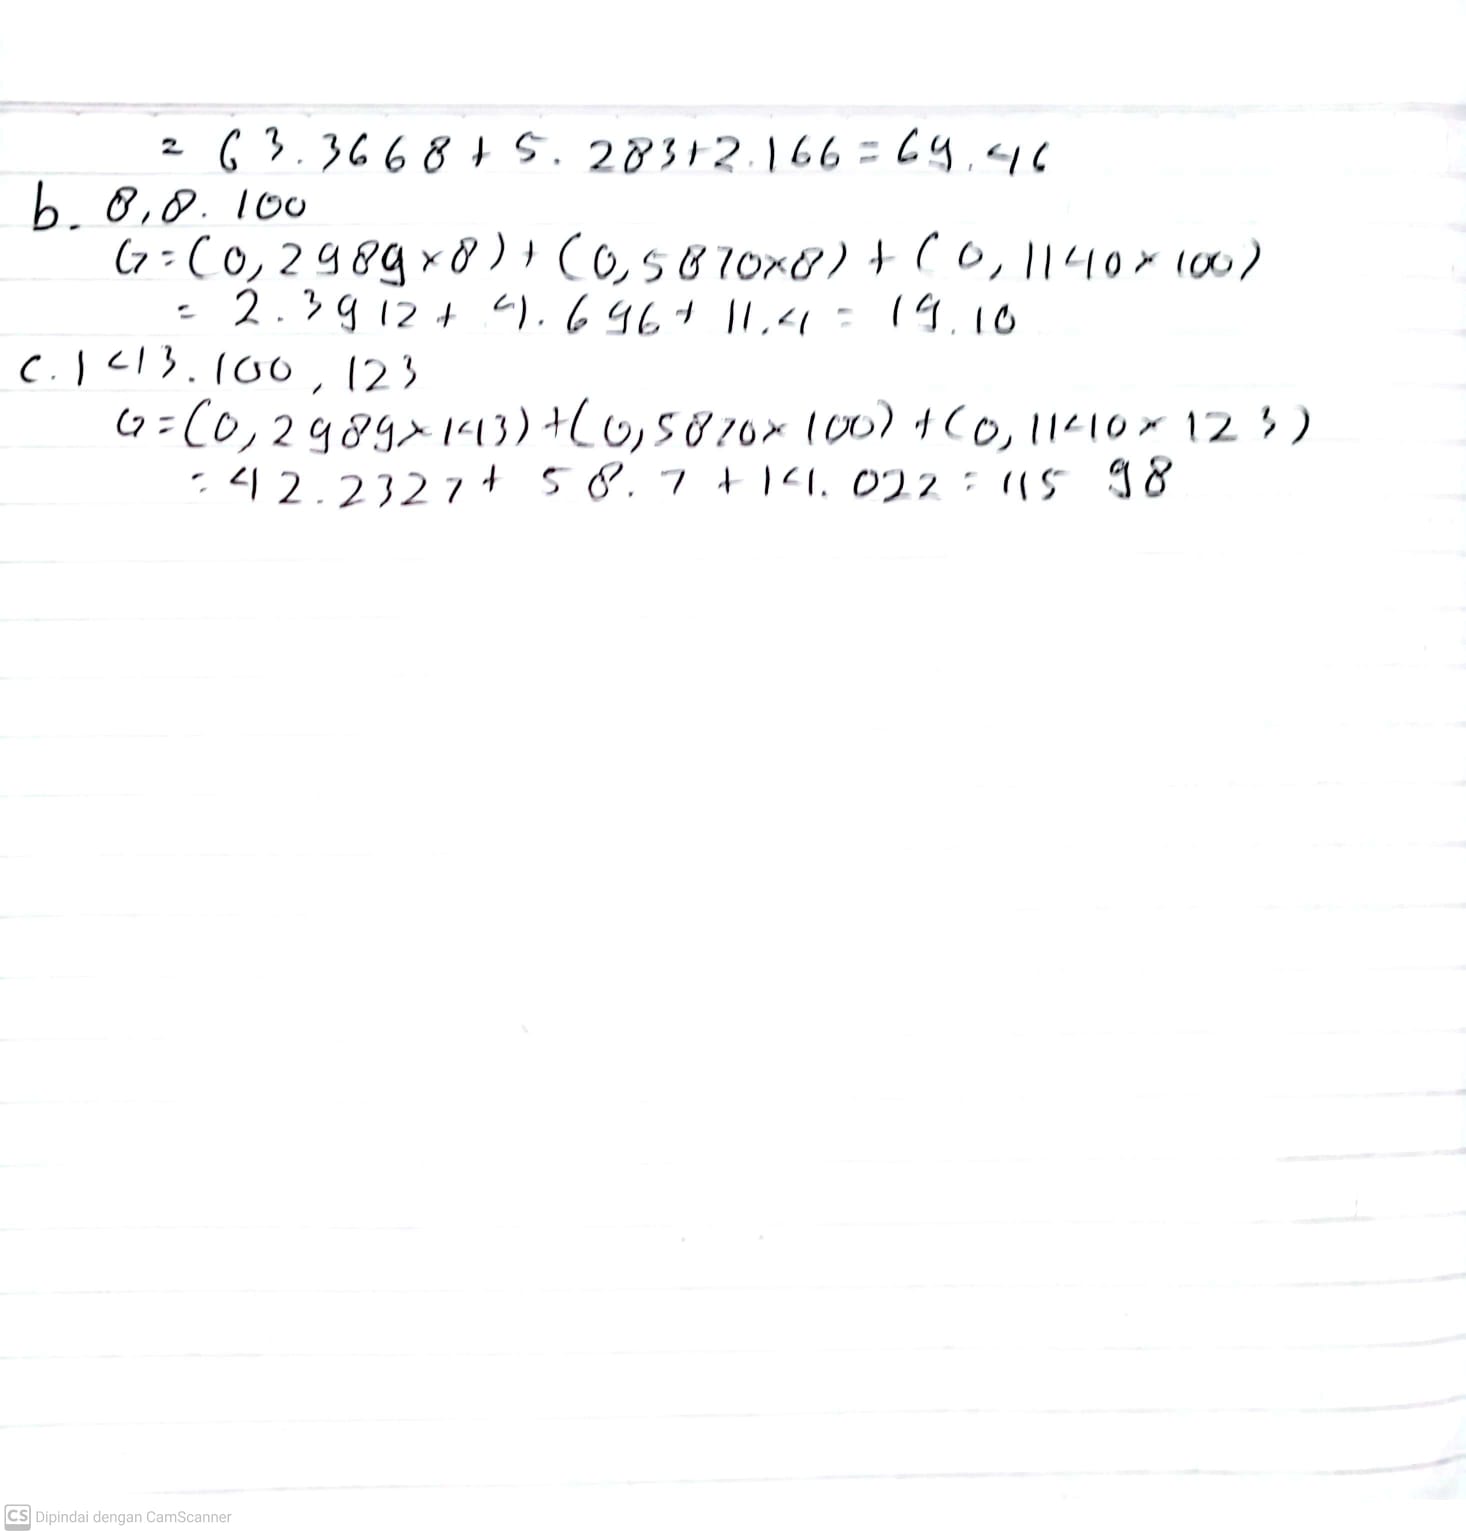 = 63.3668 + 5.283+2.166 = 69.46
b. 8,8.100
G=(0,2989×8)+(0,5870×8)+(0,1140×100)
= 2.3912+ 4.696+ 11.4 = 19.10
c. 143.100,123
G=(0,2989×143)+(0,5870×100)+(0,1140×123)
= 42.2327+ 58.7 +14.022 = 115 98
CS Dipindai dengan CamScanner